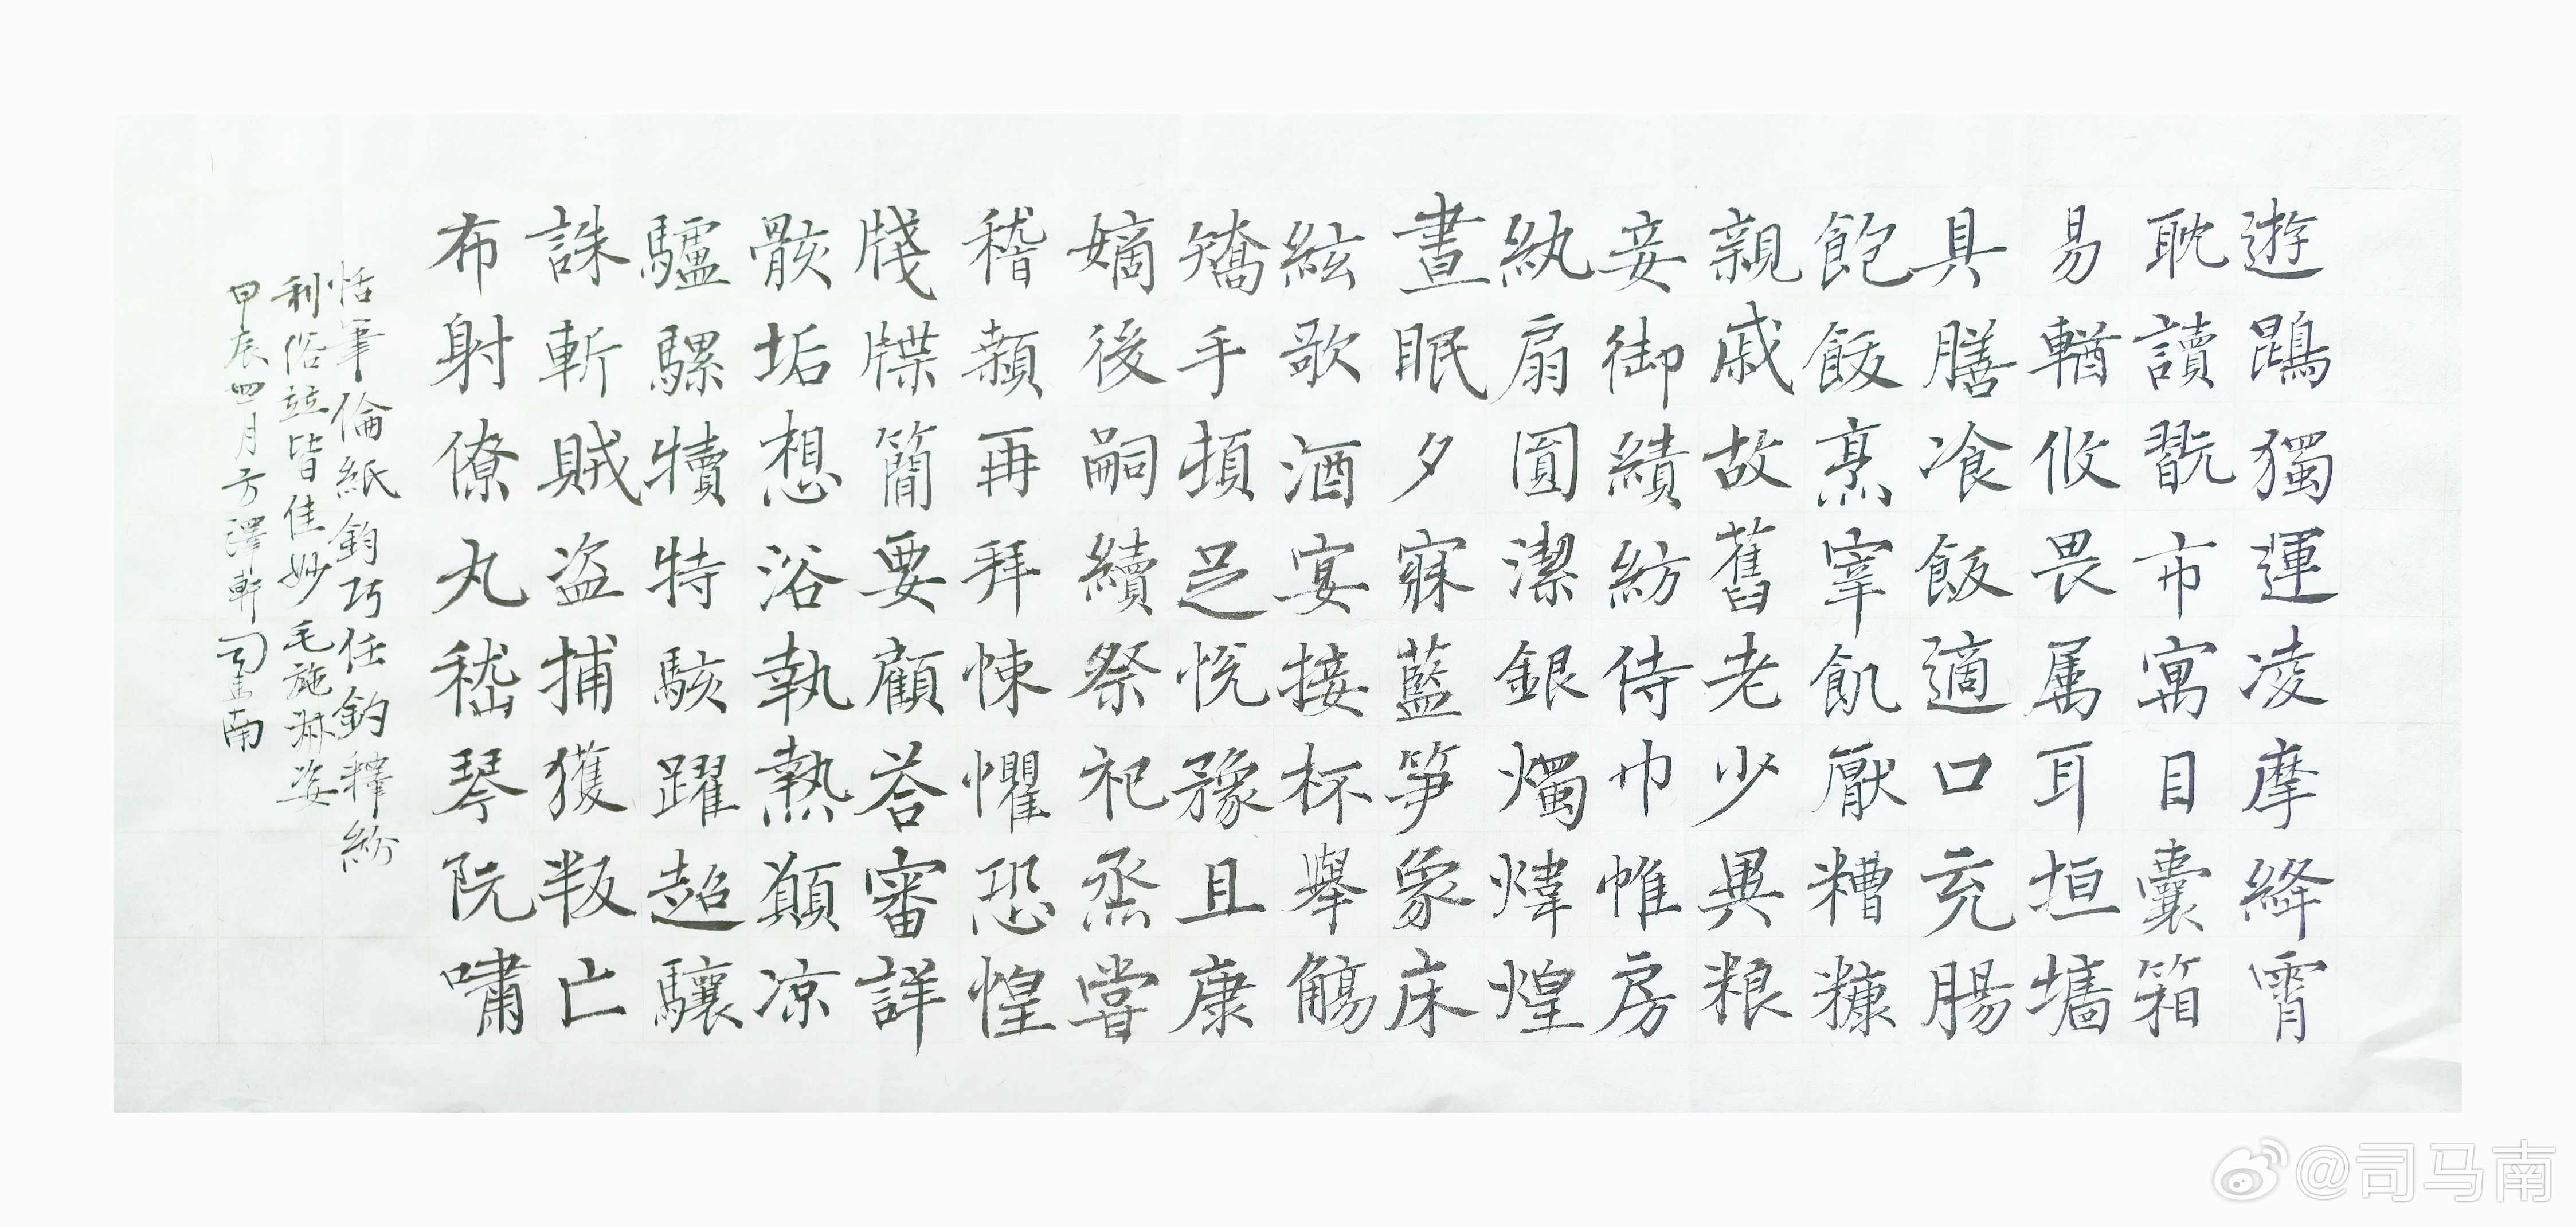 遊鵾獨運凌摩絳霄
耽讀翫市寓目囊箱
易輶攸畏属耳垣墻
具膳飡飯適口充腸
飽飫烹宰飢厭糟糠
親戚故舊老少異粮
妾御績紡侍巾帷房
紈扇圓潔銀燭煒煌
晝眠夕寐藍笋象床
絃歌酒宴接杯舉觴
矯手頓足悅豫且康
嫡後嗣續祭祀烝嘗
稽顙再拜悚懼恐惶
牋牒簡要顧荅審詳
骸垢想浴執熱願凉
驢騾犢特駭躍超驤
誅斬賊盗捕獲叛亡
布射僚丸嵇琴阮嘯
恬筆倫紙鈞巧任釣釋紛
利俗竝皆佳妙毛施淑姿
甲辰四月方澤軒司馬南
@司马南